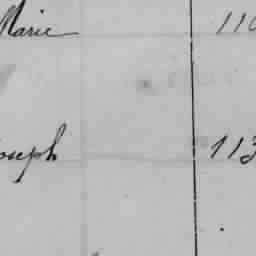 Marie 110
oseph 113